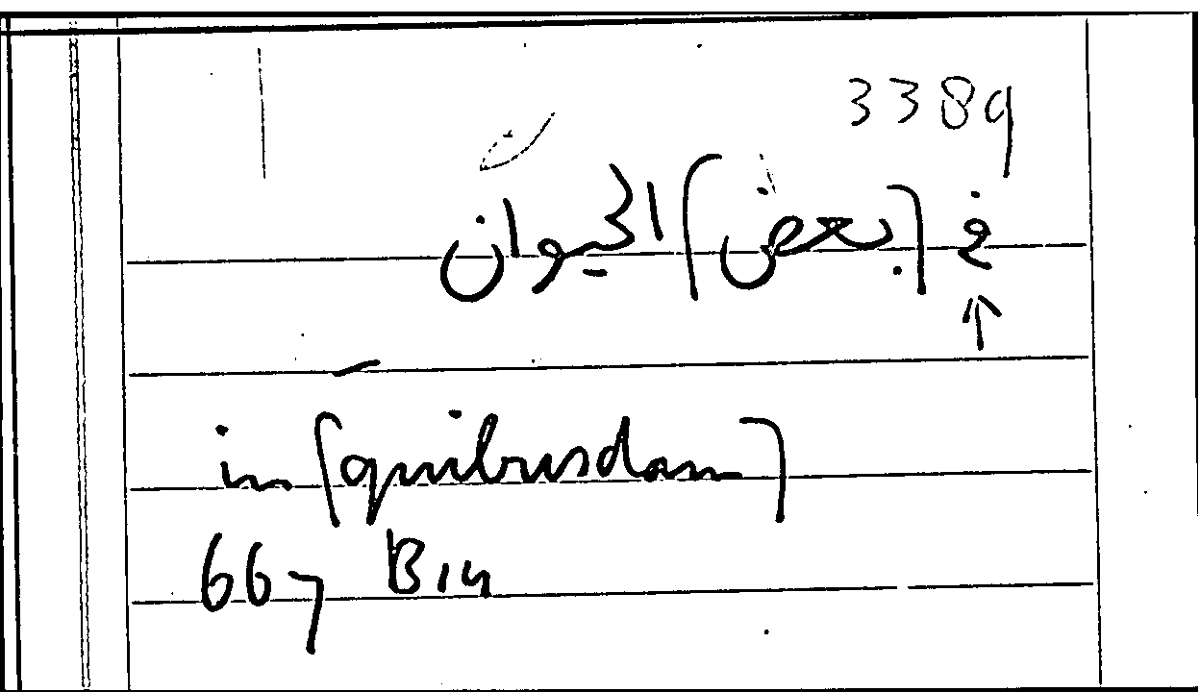 3389
في [بعض] الحيوان
↑
in [quibusdam]
667 B14